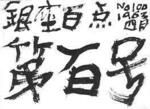 銀座百点
No 100
1963
四月
第百号